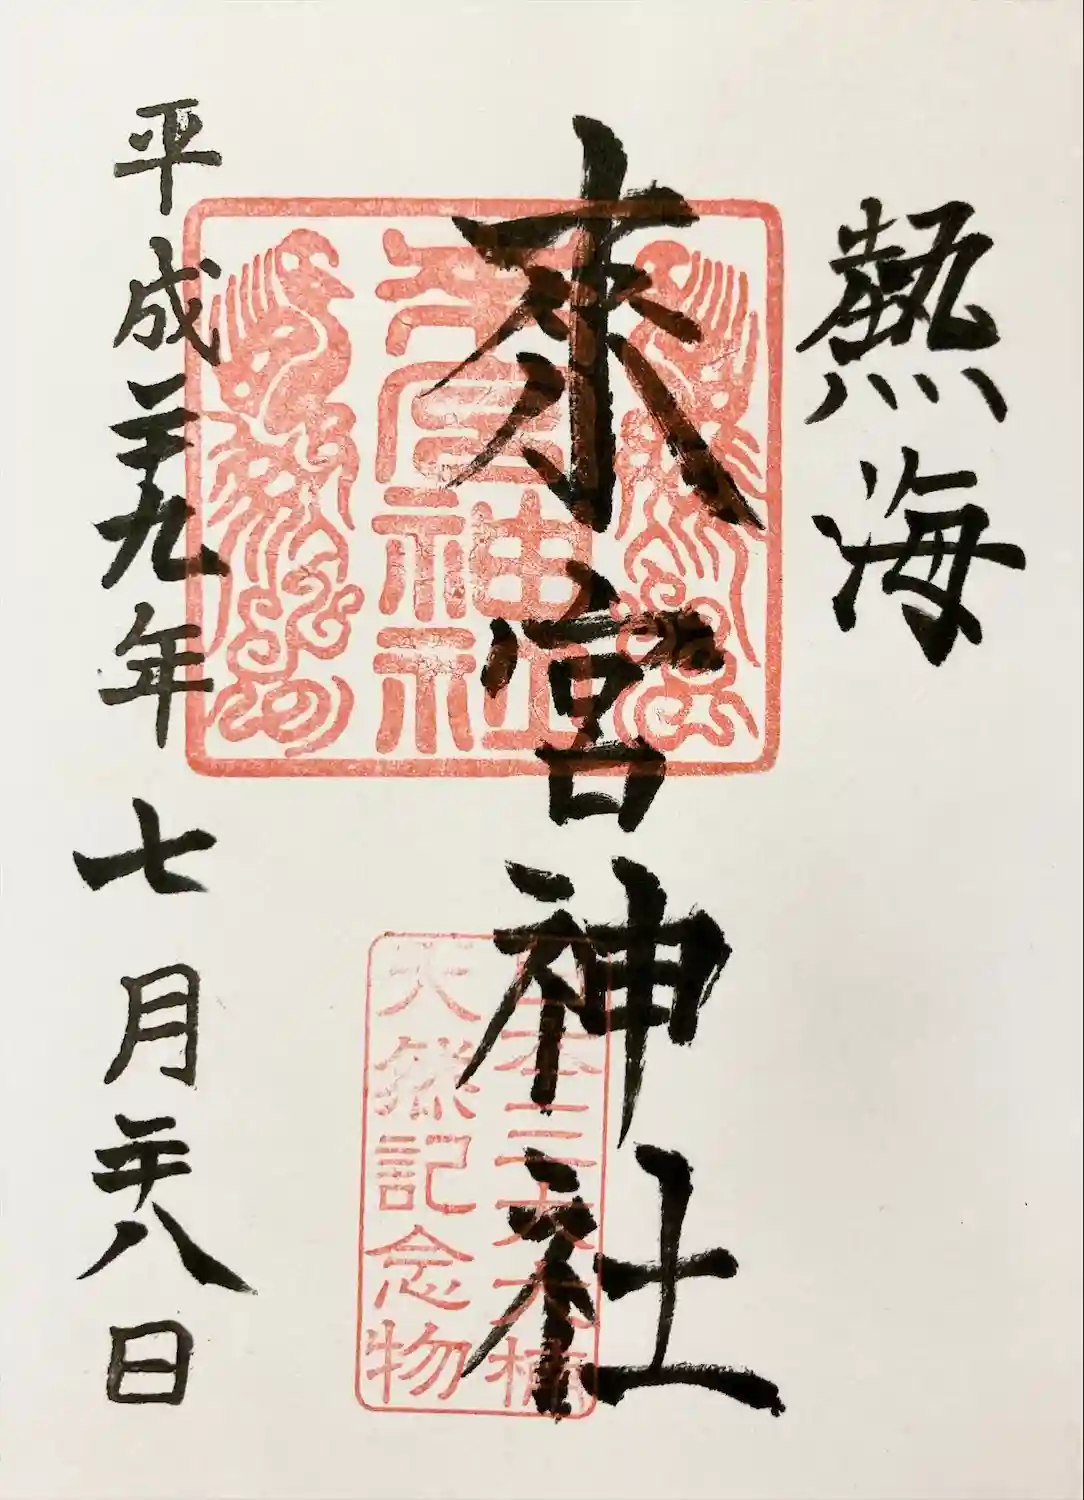 熱海
來宮神社
來宮神社
日本三大大楠
天然記念物
平成二十九年七月二十八日